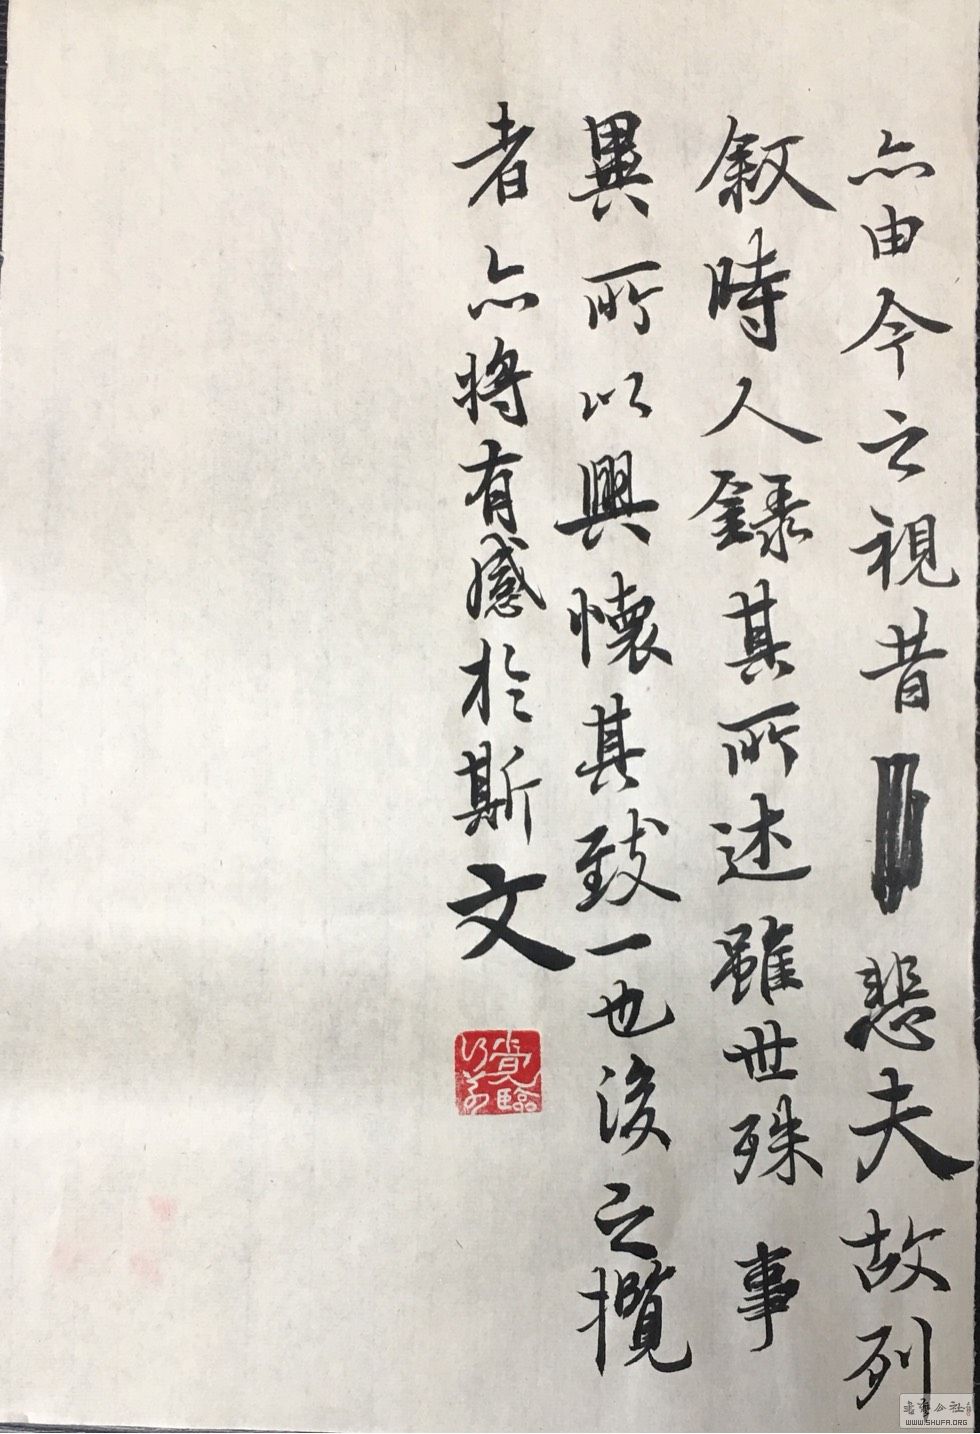 亦由今之視昔悲夫故列
叙時人錄其所述雖世殊事
異所以興懷其致一也後之攬
者亦將有感於斯文
WWW.SHUFA.ORG